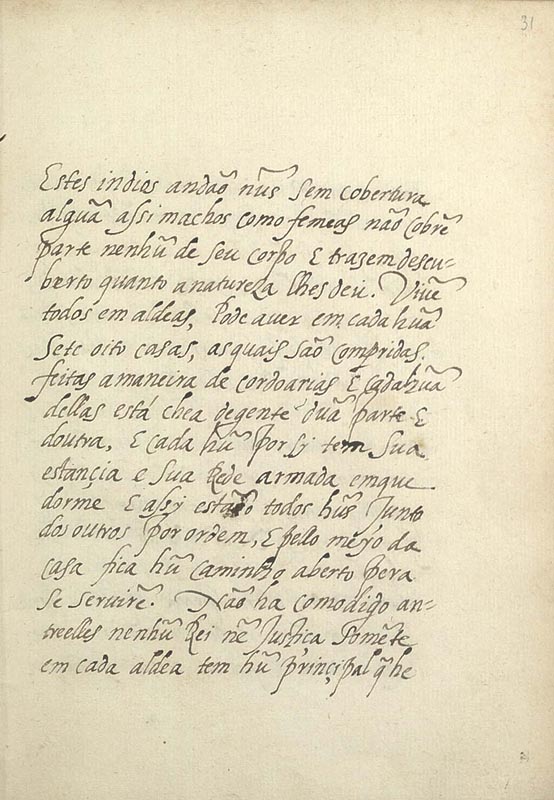 31
Estes indios andaõ nũs sem cobertura
algũa assi machos como femeas não cobrẽ
parte nenhũ de seu corpo E trazem descu-
berto quanto a natureza lhes deu. Vivẽ
todos em aldeas, Pode aver em cada hũa
sete oito casas, as quais são compridas.
feitas a maneira de cordoarias E cada hũa
dellas está chea de gente dũa parte E
doutra, E cada hũ por sy tem sua
estançia e sua Rede armada em que
dorme E assy estaõ todos hũs Junto
dos outros por ordem, E pello meyo da
casa fica hũ caminho aberto pera
se servirẽ. Não ha como digo an=
tre elles nenhũ Rei nẽ Justiça somẽte
em cada aldea tem hũ prinçipal q̃ he